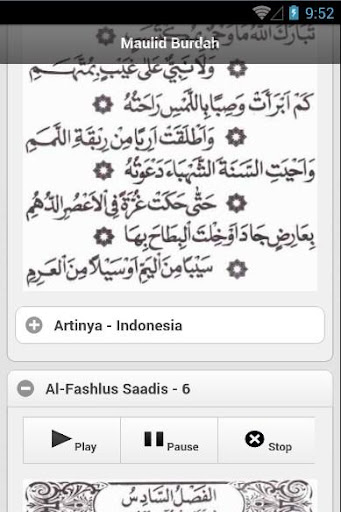 9:52
Maulid Burdah
تَبَارَكَ اللهُ مَا وَحْيٌ
وَلَا نَبِيٌّ عَلَى غَيْبٍ بِمُتَّهَمِ
كَمْ اَبْرَأَتْ وَصِبًا بِاللَّمْسِ رَاحَتُهُ
وَاَطْلَقَتْ اَرِبًا مِنْ رِبْقَةِ اللَّمَمِ
وَاَحْيَتِ السَّنَةَ الشَّهْبَاءَ دَعْوَتُهُ
حَتَّى حَكَتْ غُرَّةً فِي الْاَعْصُرِ الدُّهُمِ
بِعَارِضٍ جَادَ اَوْ خِلْتَ الْبِطَاحَ بِهَا
سَيْبًا مِنَ الْيَمِّ اَوْ سَيْلًا مِنَ الْعَرِمِ
Artinya - Indonesia
Al-Fashlus Saadis - 6
Play Pause Stop
الفَصْلُ السَّادِسُ